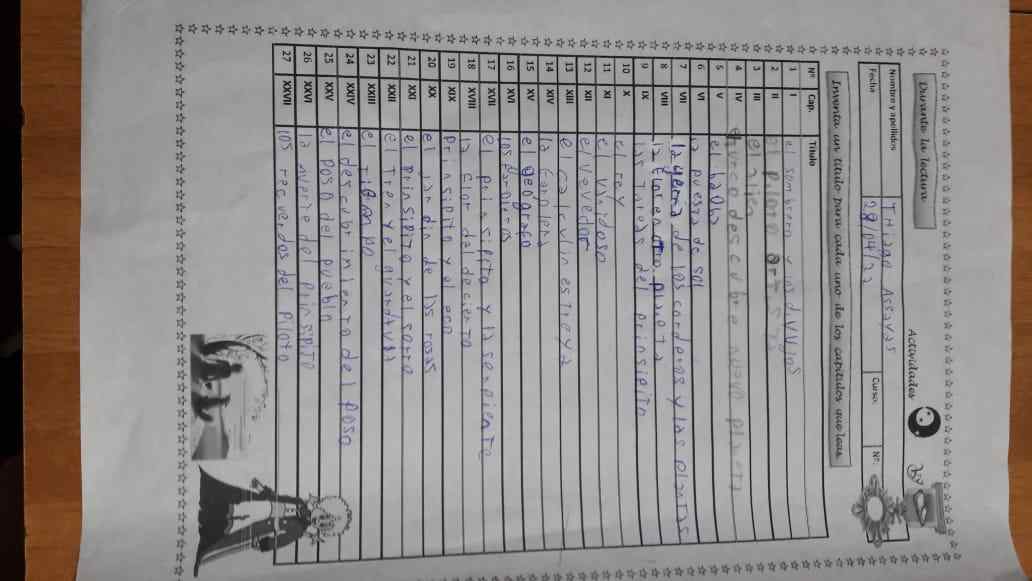 Actividades
Durante la lectura
Nombre y apellidos THiago Assayas
Fecha 28/04/22 Curso: Nº:
Inventa un título para cada uno de los capítulos que leas
Nº Cap. Título
1 I el sombrero y los divVjos
2 II el piloto
3 III el alien
4 IV turco descubre nuevo planeta
5 V el baoba
6 VI la puesta de sol
7 VII la guerra de los corderos y las plantas
8 VIII la flor en otro planeta
9 IX las tareas del prinsipito
10 X el rey
11 XI el vanidoso
12 XII el vevedor
13 XIII el calculin estreya
14 XIV la farolera
15 XV el geografo
16 XVI los faroleros
17 XVII el prinsipito y la serpiente
18 XVIII la flor del decierto
19 XIX prinsipito y el eco
20 XX el jardin de las rosas
21 XXI el prinsipito y el sorro
22 XXII el Tren y el guardavía
23 XXIII el tiempo
24 XXIV el descubrimiento del poso
25 XXV el poso del pueblo
26 XXVI la muerte del prinsipito
27 XXVII los recuerdos del piloto